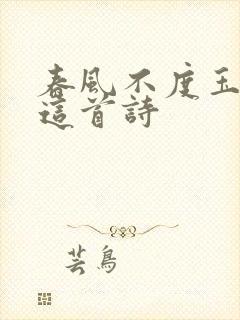 春風不度玉
這首詩
芸鳥